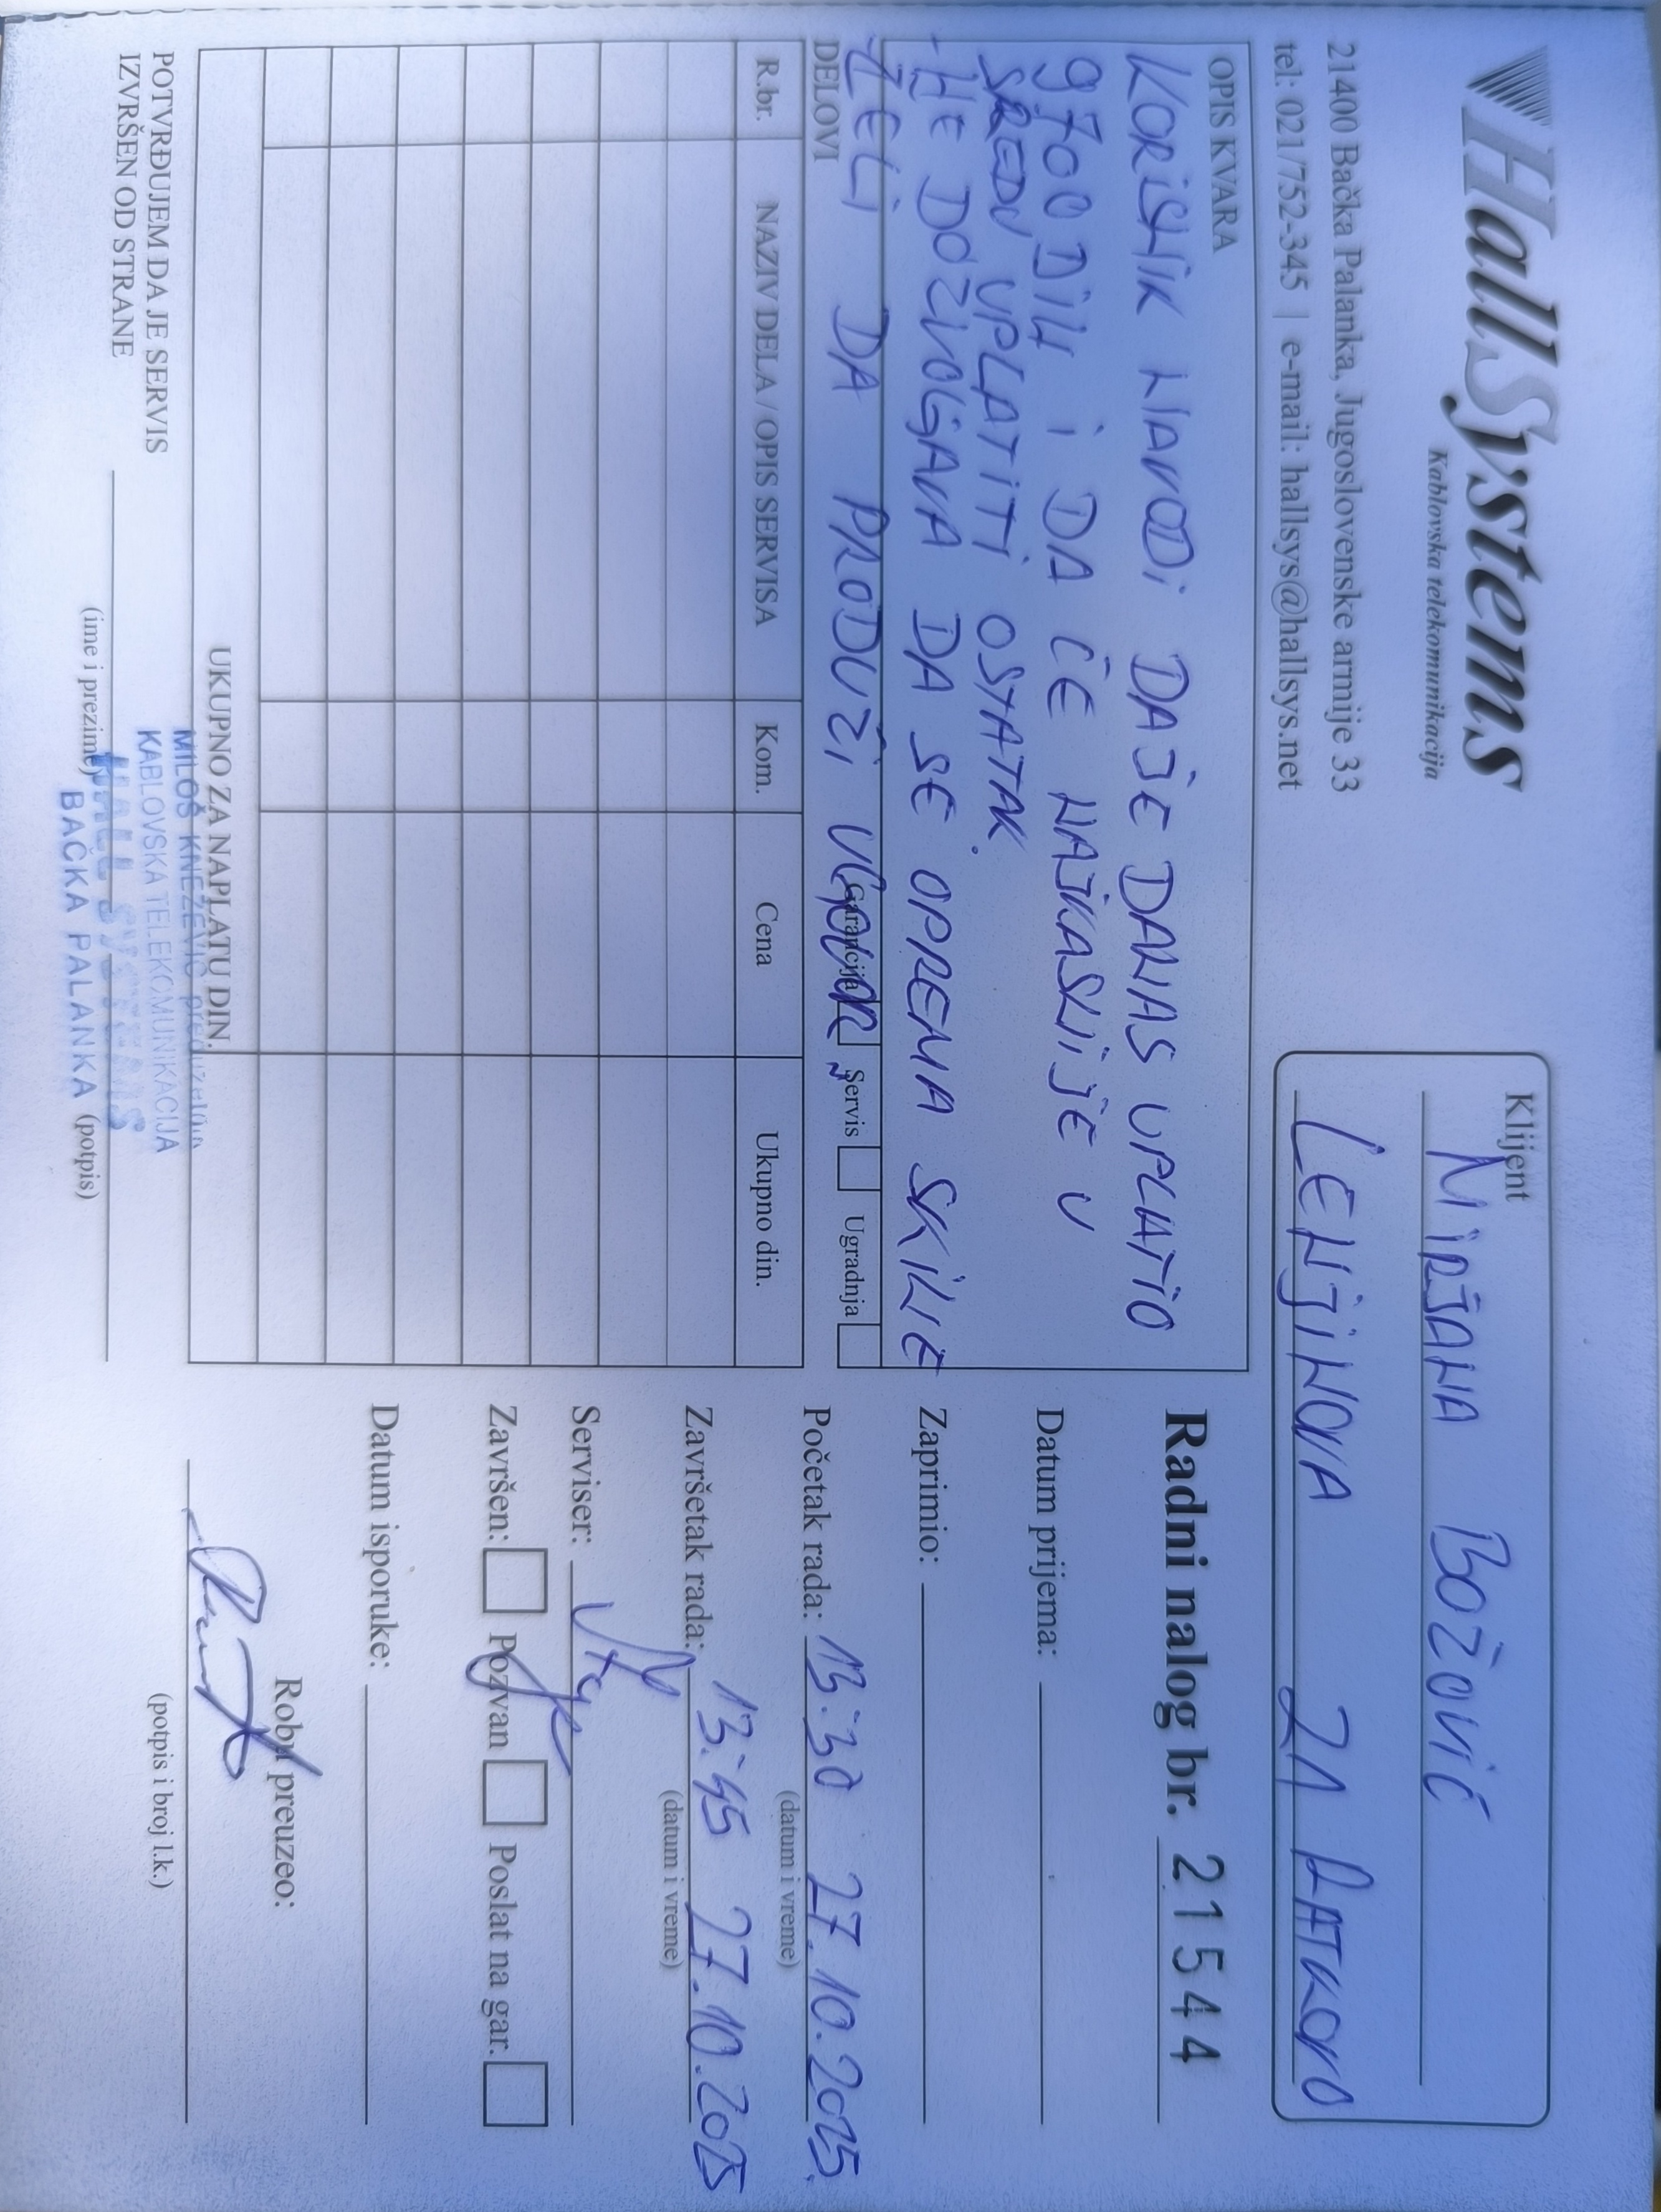 HallSystems
Kablovska telekomunikacija
21400 Bačka Palanka, Jugoslovenske armije 33
tel: 021/752-345 | e-mail: hallsys@hallsys.net
Klijent
MIRJANA BOŽOVIĆ
LENJINOVA 21 RATKOVO
OPIS KVARA
KORISNIK NAVODI DA JE DANAS UPLATIO
9700 DIN I DA ĆE NAJKASNIJE U
SREDU UPLATITI OSTATAK.
- NE DOZVOLJAVA DA SE OPREMA SKINE
ŽELI DA PRODUŽI UGOVOR
DELOVI
Garancija Servis Ugradnja
R.br. NAZIV DELA / OPIS SERVISA Kom. Cena Ukupno din.
UKUPNO ZA NAPLATU DIN.
POTVRĐUJEM DA JE SERVIS
IZVRŠEN OD STRANE
(ime i prezime) (potpis)
MILOŠ KNEŽEVIĆ preduzetnik
KABLOVSKA TELEKOMUNIKACIJA
HALL SYSTEMS
BAČKA PALANKA
Radni nalog br. 21544
Datum prijema:
Zaprimio:
Početak rada: 13:30 27.10.2025.
(datum i vreme)
Završetak rada: 13:45 27.10.2025
(datum i vreme)
Serviser:
Završen: Pozvan Poslat na gar.
Datum isporuke:
Robu preuzeo:
(potpis i broj l.k.)